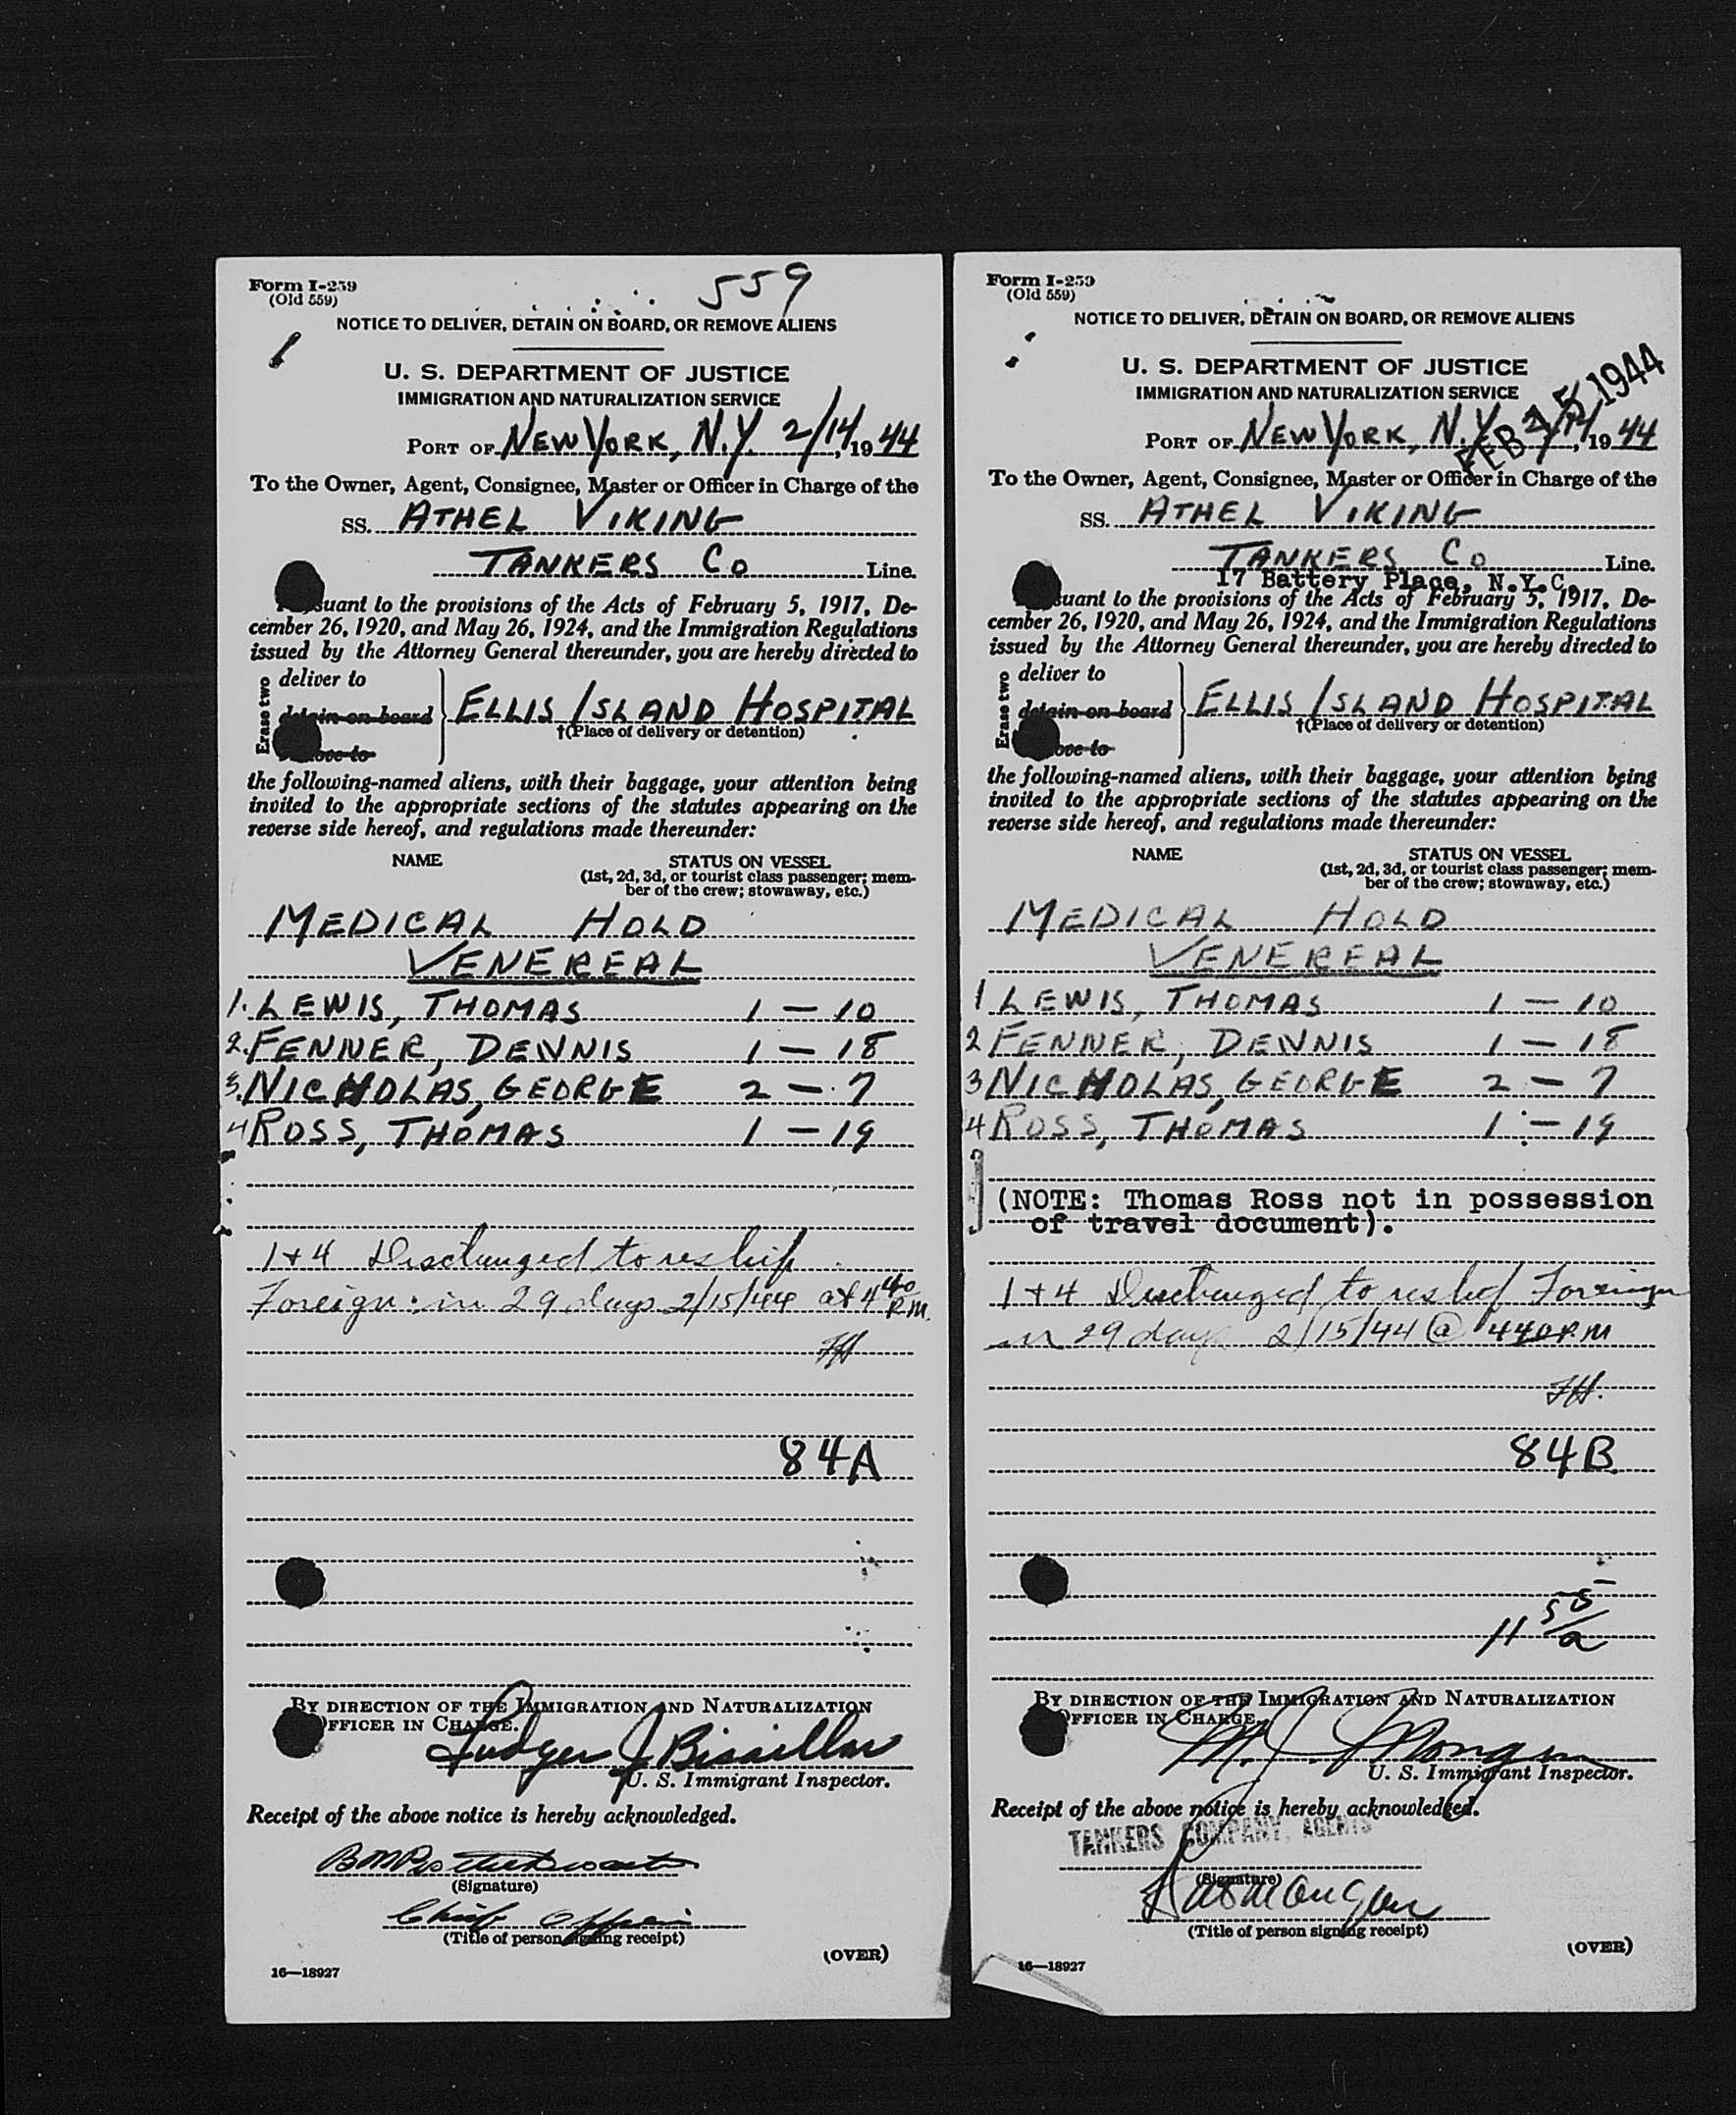 Form I-259
(Old 559)
559
NOTICE TO DELIVER, DETAIN ON BOARD, OR REMOVE ALIENS
U. S. DEPARTMENT OF JUSTICE
IMMIGRATION AND NATURALIZATION SERVICE
PORT OF NEW YORK, N.Y. 2/14, 1944
To the Owner, Agent, Consignee, Master or Officer in Charge of the
SS. ATHEL VIKING
TANKERS CO Line.
suant to the provisions of the Acts of February 5, 1917, De-
cember 26, 1920, and May 26, 1924, and the Immigration Regulations
issued by the Attorney General thereunder, you are hereby directed to
Erase two
deliver to
detain on board
ELLIS ISLAND HOSPITAL
†(Place of delivery or detention)
ove to
the following-named aliens, with their baggage, your attention being
invited to the appropriate sections of the statutes appearing on the
reverse side hereof, and regulations made thereunder:
NAME
STATUS ON VESSEL
(1st, 2d, 3d, or tourist class passenger; mem-
ber of the crew; stowaway, etc.)
MEDICAL HOLD
VENEREAL
1. LEWIS, THOMAS 1 - 10
2. FENNER, DENNIS 1 - 18
3. NICHOLAS, GEORGE 2 - 7
4 ROSS, THOMAS 1 - 19
1 + 4 Discharged to reship
Foreign in 29 days 2/15/44 at 4 40 P.M.
84A
BY DIRECTION OF THE IMMIGRATION AND NATURALIZATION
OFFICER IN CHARGE.
J Bisaillon
U. S. Immigrant Inspector.
Receipt of the above notice is hereby acknowledged.
(Signature)
Chief Officer
(Title of person signing receipt)
(OVER)
16—18927
Form I-259
(Old 559)
NOTICE TO DELIVER, DETAIN ON BOARD, OR REMOVE ALIENS
U. S. DEPARTMENT OF JUSTICE
IMMIGRATION AND NATURALIZATION SERVICE
FEB 15 1944
PORT OF NEW YORK, N.Y. 2/14, 1944
To the Owner, Agent, Consignee, Master or Officer in Charge of the
SS. ATHEL VIKING
TANKERS CO Line.
17 Battery Place, N.Y.C.
suant to the provisions of the Acts of February 5, 1917, De-
cember 26, 1920, and May 26, 1924, and the Immigration Regulations
issued by the Attorney General thereunder, you are hereby directed to
Erase two
deliver to
detain on board
ELLIS ISLAND HOSPITAL
†(Place of delivery or detention)
ove to
the following-named aliens, with their baggage, your attention being
invited to the appropriate sections of the statutes appearing on the
reverse side hereof, and regulations made thereunder:
NAME
STATUS ON VESSEL
(1st, 2d, 3d, or tourist class passenger; mem-
ber of the crew; stowaway, etc.)
MEDICAL HOLD
VENEREAL
1 LEWIS, THOMAS 1 - 10
2 FENNER, DENNIS 1 - 18
3 NICHOLAS, GEORGE 2 - 7
4 ROSS, THOMAS 1 - 19
(NOTE: Thomas Ross not in possession
of travel document).
1 + 4 Discharged to reship Foreign
in 29 days 2/15/44 @ 440 P.M
84B
11 55/a
BY DIRECTION OF THE IMMIGRATION AND NATURALIZATION
OFFICER IN CHARGE.
U. S. Immigrant Inspector.
Receipt of the above notice is hereby acknowledged.
TANKERS COMPANY, AGENTS
(Signature)
(Title of person signing receipt)
(OVER)
16—18927